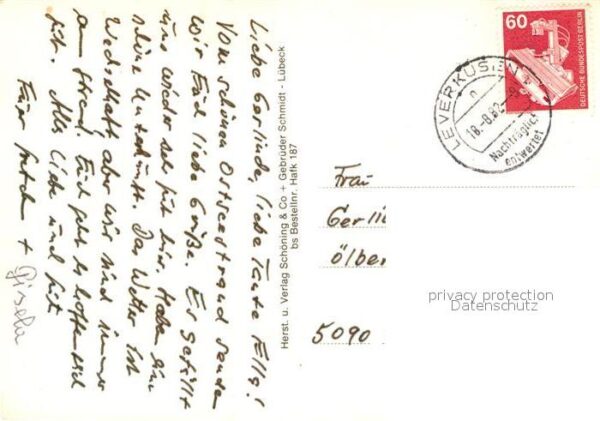 Liebe Gerlinde, liebe Tante Elly!
Vom schönen Ostseestrand senden
wir Euch liebe Grüße. Es gefällt
uns wieder sehr gut hier. Haben eine
schöne Unterkunft. Das Wetter ist
Wechselhaft aber wir sind immer
am Strand. Euch geht es hoffentlich
gut. Alles Liebe und Gute
Euer +
Gisela
Herst. u. Verlag Schöning & Co + Gebrüder Schmidt - Lübeck
bs Bestellnr. Hafk 187
60
DEUTSCHE BUNDESPOST BERLIN
LEVERKUSEN
n
18.-8.82
Nachträglich
entwertet
Frau
Gerli
Ölber
5090
privacy protection
Datenschutz